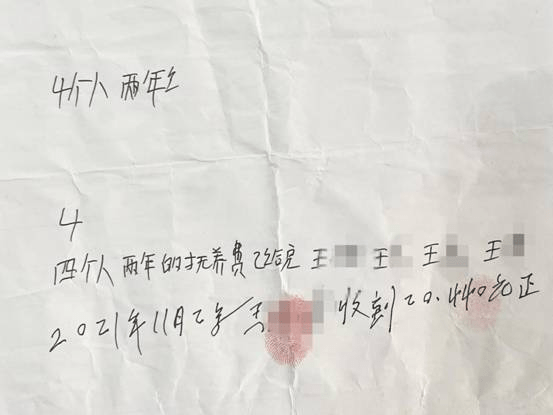 4个人 两年
4
四个人 两年的抚养费已给完 王 王 王 王
2021年11月2 收到20.440元正